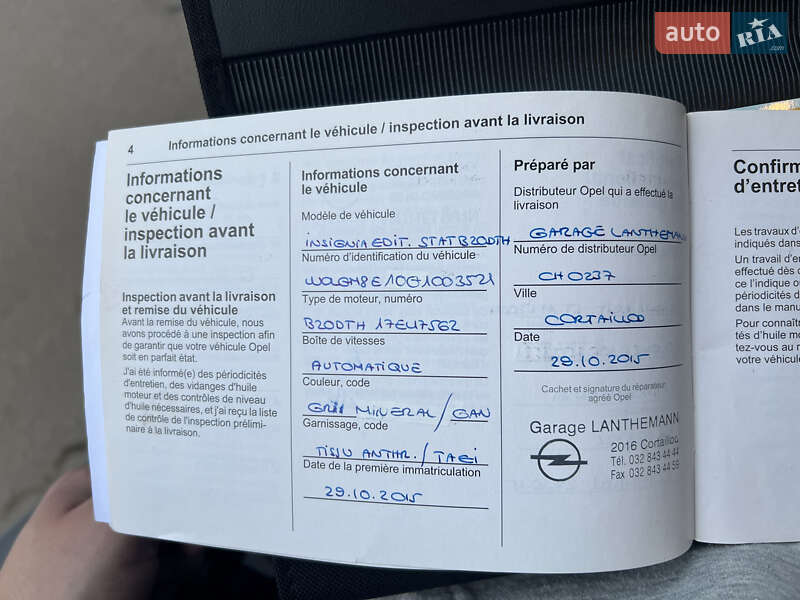 auto RIA .com
4 Informations concernant le véhicule / inspection avant la livraison
Informations
concernant
le véhicule /
inspection avant
la livraison
Inspection avant la livraison
et remise du véhicule
Avant la remise du véhicule, nous
avons procédé à une inspection afin
de garantir que votre véhicule Opel
soit en parfait état.
J'ai été informé(e) des périodicités
d'entretien, des vidanges d'huile
moteur et des contrôles de niveau
d'huile nécessaires, et j'ai reçu la liste
de contrôle de l'inspection prélimi-
naire à la livraison.
Informations concernant
le véhicule
Modèle de véhicule
INSIGNIA EDIT. STAT B20DTH
Numéro d'identification du véhicule
W0LGM8E10G1003521
Type de moteur, numéro
B20DTH 17EU7562
Boîte de vitesses
AUTOMATIQUE
Couleur, code
GRIS MINERAL / GAN
Garnissage, code
TISSU ANTHR. / TAEI
Date de la première immatriculation
29.10.2015
Préparé par
Distributeur Opel qui a effectué la
livraison
GARAGE LANTHEMANN
Numéro de distributeur Opel
CH0237
Ville
CORTAILLOD
Date
29.10.2015
Cachet et signature du réparateur
agréé Opel
Garage LANTHEMANN
2016 Cortaillod
Tél. 032 843 44 44
Fax 032 843 44 59
Confirm
d'entret
Les travaux d'
indiqués dans
Un travail d'en
effectué dès q
ce l'indique ou
périodicités d
dans le manu
Pour connaît
tés d'huile mo
tez-vous au m
votre véhicule